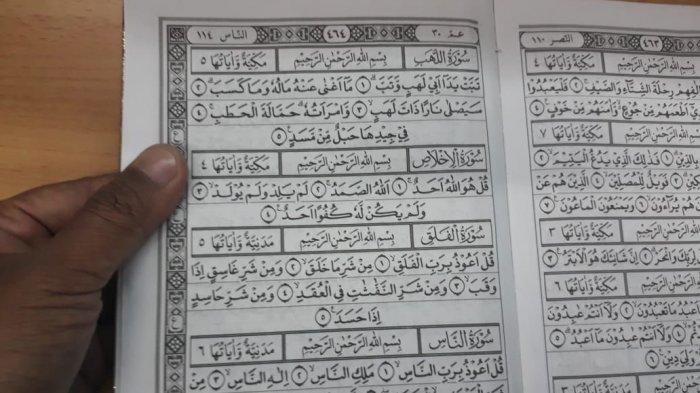 عم ٣٠
٤٦٤
الناس ١١٤
سُوْرَةُ اللَّهَبِ
بِسْمِ اللهِ الرَّحْمٰنِ الرَّحِيْمِ
مَكِّيَّةٌ وَاٰيَاتُهَا ٥
تَبَّتْ يَدَآ اَبِيْ لَهَبٍ وَّتَبَّ ۝١ مَآ اَغْنٰى عَنْهُ مَالُهُ وَمَا كَسَبَ ۝٢
سَيَصْلٰى نَارًا ذَاتَ لَهَبٍ ۝٣ وَامْرَاَتُهُ حَمَّالَةَ الْحَطَبِ ۝٤
فِيْ جِيْدِهَا حَبْلٌ مِّنْ مَّسَدٍ ۝٥
سُوْرَةُ الْاِخْلَاصِ
بِسْمِ اللهِ الرَّحْمٰنِ الرَّحِيْمِ
مَكِّيَّةٌ وَاٰيَاتُهَا ٤
قُلْ هُوَ اللهُ اَحَدٌ ۝١ اَللهُ الصَّمَدُ ۝٢ لَمْ يَلِدْ وَلَمْ يُوْلَدْ ۝٣
وَلَمْ يَكُنْ لَّهُ كُفُوًا اَحَدٌ ۝٤
سُوْرَةُ الْفَلَقِ
بِسْمِ اللهِ الرَّحْمٰنِ الرَّحِيْمِ
مَدَنِيَّةٌ وَاٰيَاتُهَا ٥
قُلْ اَعُوْذُ بِرَبِّ الْفَلَقِ ۝١ مِنْ شَرِّ مَا خَلَقَ ۝٢ وَمِنْ شَرِّ غَاسِقٍ اِذَا
وَقَبَ ۝٣ وَمِنْ شَرِّ النَّفّٰثٰتِ فِي الْعُقَدِ ۝٤ وَمِنْ شَرِّ حَاسِدٍ
اِذَا حَسَدَ ۝٥
سُوْرَةُ النَّاسِ
بِسْمِ اللهِ الرَّحْمٰنِ الرَّحِيْمِ
مَدَنِيَّةٌ وَاٰيَاتُهَا ٦
قُلْ اَعُوْذُ بِرَبِّ النَّاسِ ۝١ مَلِكِ النَّاسِ ۝٢ اِلٰهِ النَّاسِ ۝٣ مِنْ
٤٦٣
النصر ١١٠
بِسْمِ اللهِ الرَّحْمٰنِ الرَّحِيْمِ
مَكِّيَّةٌ وَاٰيَاتُهَا ٤
رِحْلَةَ الشِّتَآءِ وَالصَّيْفِ ۝٢ فَلْيَعْبُدُوْا
اَطْعَمَهُمْ مِّنْ جُوْعٍ وَّاٰمَنَهُمْ مِّنْ خَوْفٍ ۝٤
بِسْمِ اللهِ الرَّحْمٰنِ الرَّحِيْمِ
مَكِّيَّةٌ وَاٰيَاتُهَا ٧
فَذٰلِكَ الَّذِيْ يَدُعُّ الْيَتِيْمَ ۝٢
فَوَيْلٌ لِّلْمُصَلِّيْنَ ۝٤ الَّذِيْنَ هُمْ عَنْ
يُرَآءُوْنَ ۝٦ وَيَمْنَعُوْنَ الْمَاعُوْنَ ۝٧
بِسْمِ اللهِ الرَّحْمٰنِ الرَّحِيْمِ
مَكِّيَّةٌ وَاٰيَاتُهَا ٣
لِرَبِّكَ وَانْحَرْ ۝٢ اِنَّ شَانِئَكَ هُوَ الْاَبْتَرُ ۝٣
بِسْمِ اللهِ الرَّحْمٰنِ الرَّحِيْمِ
مَكِّيَّةٌ وَاٰيَاتُهَا ٦
مَا تَعْبُدُوْنَ ۝٢ وَلَآ اَنْتُمْ عٰبِدُوْنَ
وَلَآ اَنْتُمْ عٰبِدُوْنَ مَآ اَعْبُدُ ۝٥
وَلِيَ دِيْنِ ۝٦